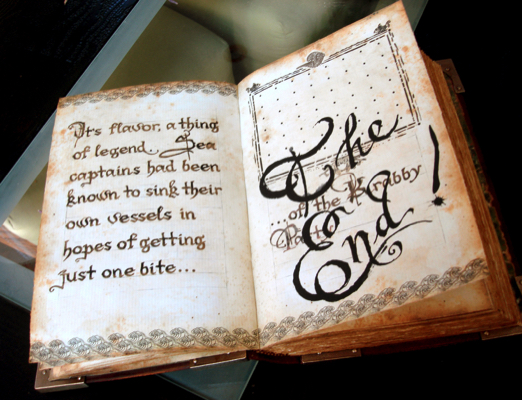 It's flavor, a thing
of legend. Sea
captains had been
known to sink their
own vessels in
hopes of getting
just one bite...
The
...of the Krabby
End!